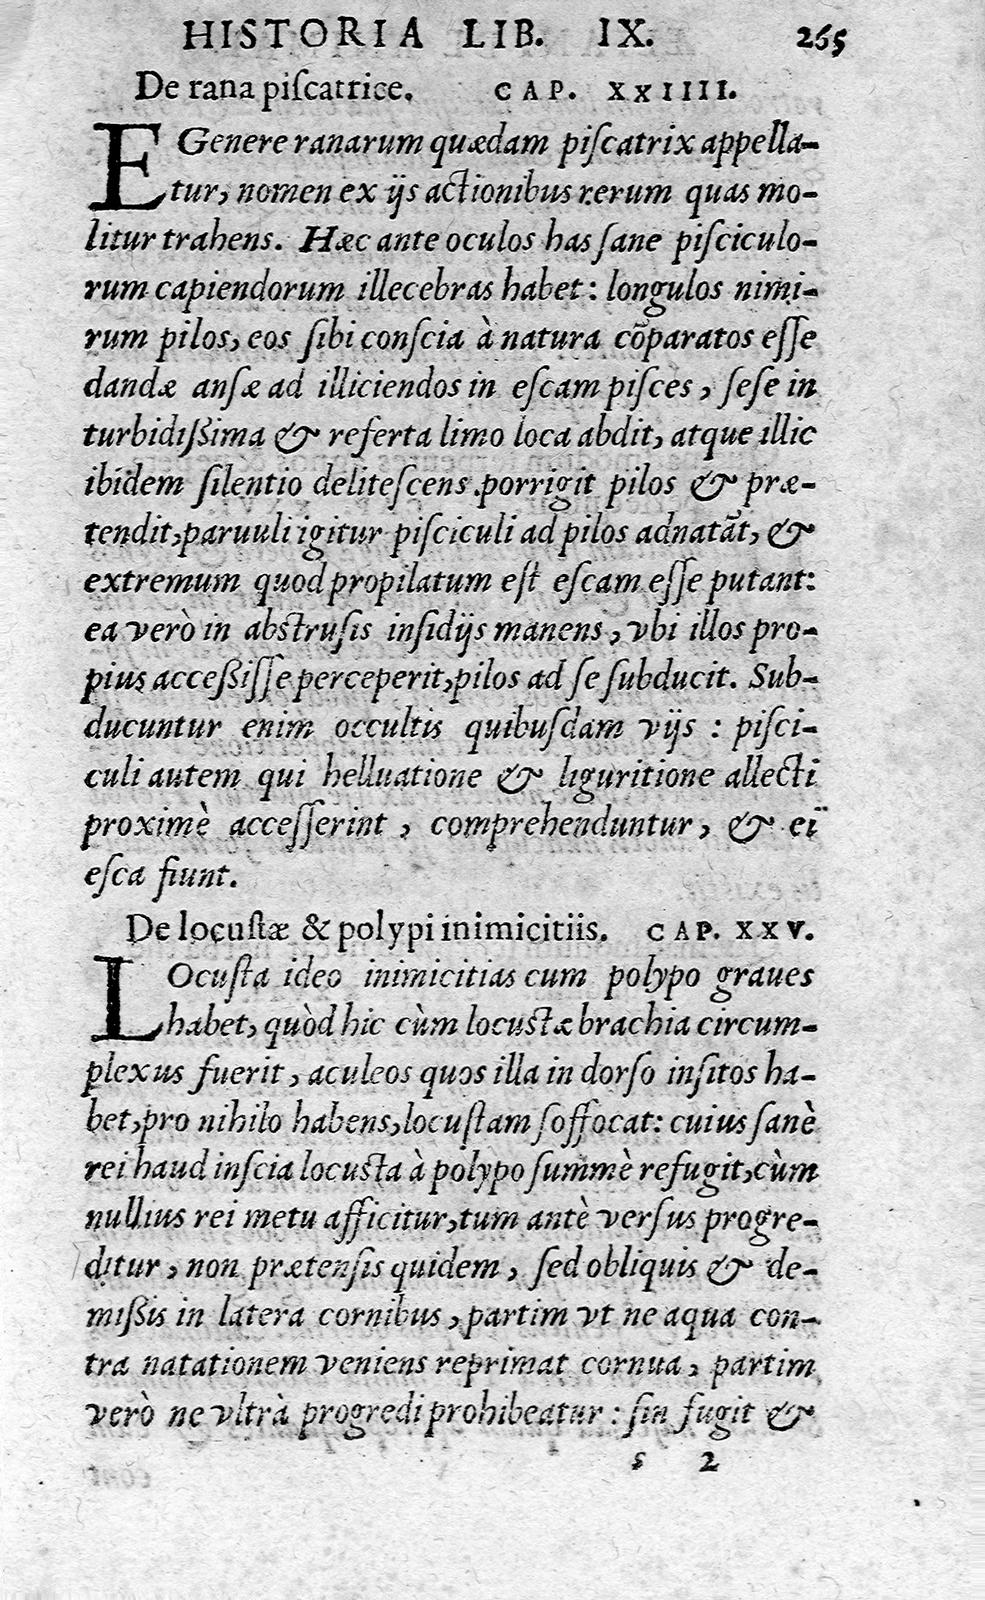 HISTORIA LIB. IX. 265
De rana piſcatrice. CAP. XXIIII.
E Genere ranarum quædam piſcatrix appella-
tur, nomen ex ijs actionibus rerum quas mo-
litur trahens. Hæc ante oculos has ſane piſciculo-
rum capiendorum illecebras habet: longulos nimi-
rum pilos, eos ſibi conſcia à natura cõparatos eſſe
dandæ anſæ ad illiciendos in eſcam piſces, ſeſe in
turbidißima & referta limo loca abdit, atque illic
ibidem ſilentio deliteſcens .porrigit pilos & præ-
tendit, paruuli igitur piſciculi ad pilos adnatãt, &
extremum quod propilatum eſt eſcam eſſe putant:
ea verò in abſtruſis inſidijs manens, vbi illos pro-
pius acceßiſſe perceperit, pilos ad ſe ſubducit. Sub-
ducuntur enim occultis quibuſdam vijs : piſci-
culi autem qui helluatione & liguritione allecti
proximè acceſſerint, comprehenduntur, & eï
eſca fiunt.
De locuſtæ & polypi inimicitiis. CAP. XXV.
LOcuſta ideo inimicitias cum polypo graues
habet, quòd hic cùm locuſtæ brachia circum-
plexus fuerit, aculeos quos illa in dorſo inſitos ha-
bet, pro nihilo habens, locuſtam ſoffocat: cuius ſanè
rei haud inſcia locuſta à polypo ſummè refugit, cùm
nullius rei metu afficitur, tum antè verſus progre-
ditur, non prætenſis quidem, ſed obliquis & de-
mißis in latera cornibus, partim vt ne aqua con-
tra natationem veniens reprimat cornua, partim
verò ne vltrà progredi prohibeatur : ſin fugit &
s 2